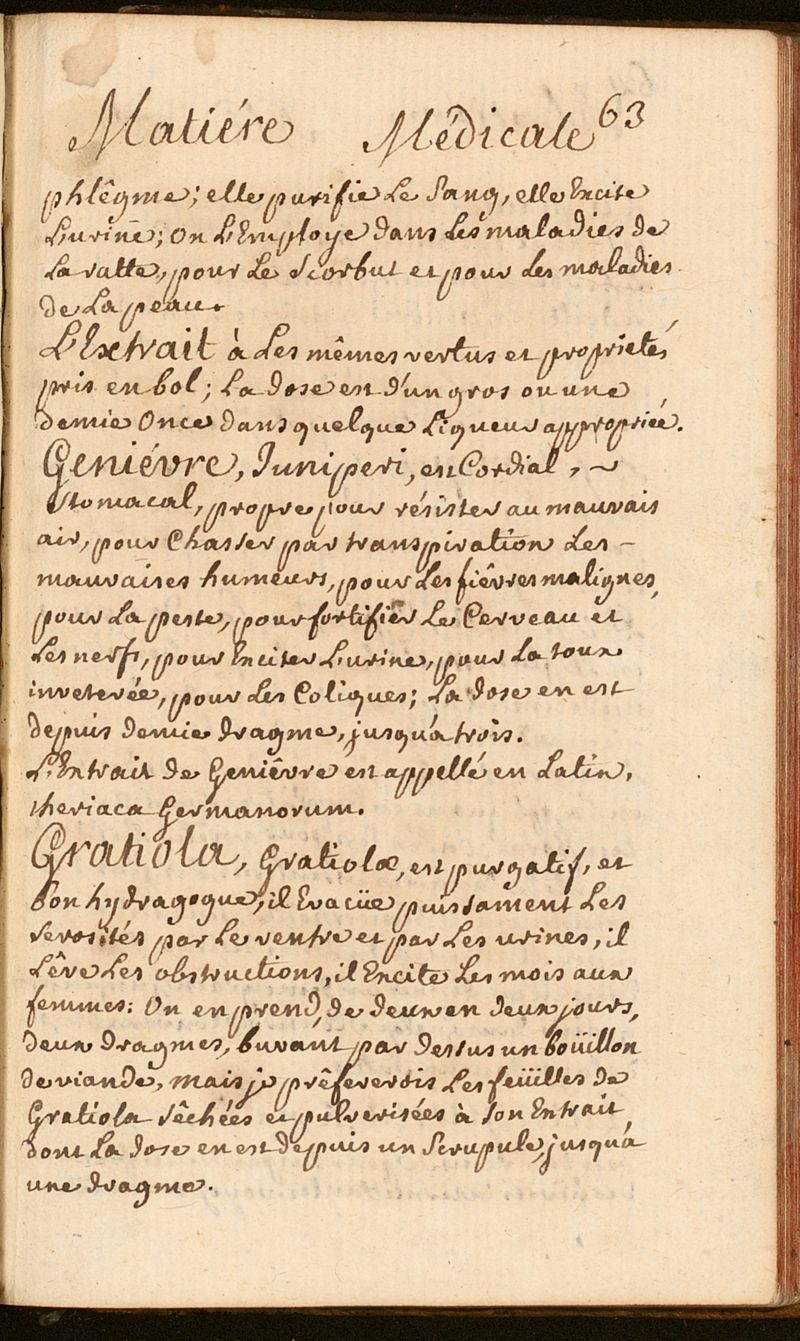 Matiére Médicale 63
phlêgme; elle purifie Le Sang, elle Excite
L'urine; On L'Employe dans Les maladies de
La ratte, pour Le Scorbut et pour Les maladies
de La peau.
L'Extrait à Les mêmes vertus et proprietés
pris en bol; La dose est d'un gros ou une
demie Once dans quelque Liqueur appropriée.
Geniévre, Juniperi, est Cordial, ~
Stomacal, propre pour résister au mauvais
air, pour Chasser par transpiration Les –
mauvaises humeurs, pour Les fiêvres malignes,
pour La peste, pour fortifier Le Cerveau et
Les nerfs, pour Exciter L'urine, pour La toux
inveterée, pour Les Coliques; La dose en est
depuis demie dragme, jusqu'a trois.
L'Extrait de Geniêvre est appellé en Latin,
theriaca Germanorum.
Gratiola, Gratiolæ, est purgatif, et
bon hydragogue, il Evacüe puissament Les
serosités par Le ventre et par Les urines, il
Lêve Les obstructions, il Excite Les mois aux
femmes: On en prend, de deux en deux jours,
deux dragmes, buvant par dessus un boüillon
de viande, mais je prêfererois Les feüilles de
Gratiola sêchées et pulverisées à son Extrait
dont La dose en est depuis un Scrupule, jusqu'a
une dragme.